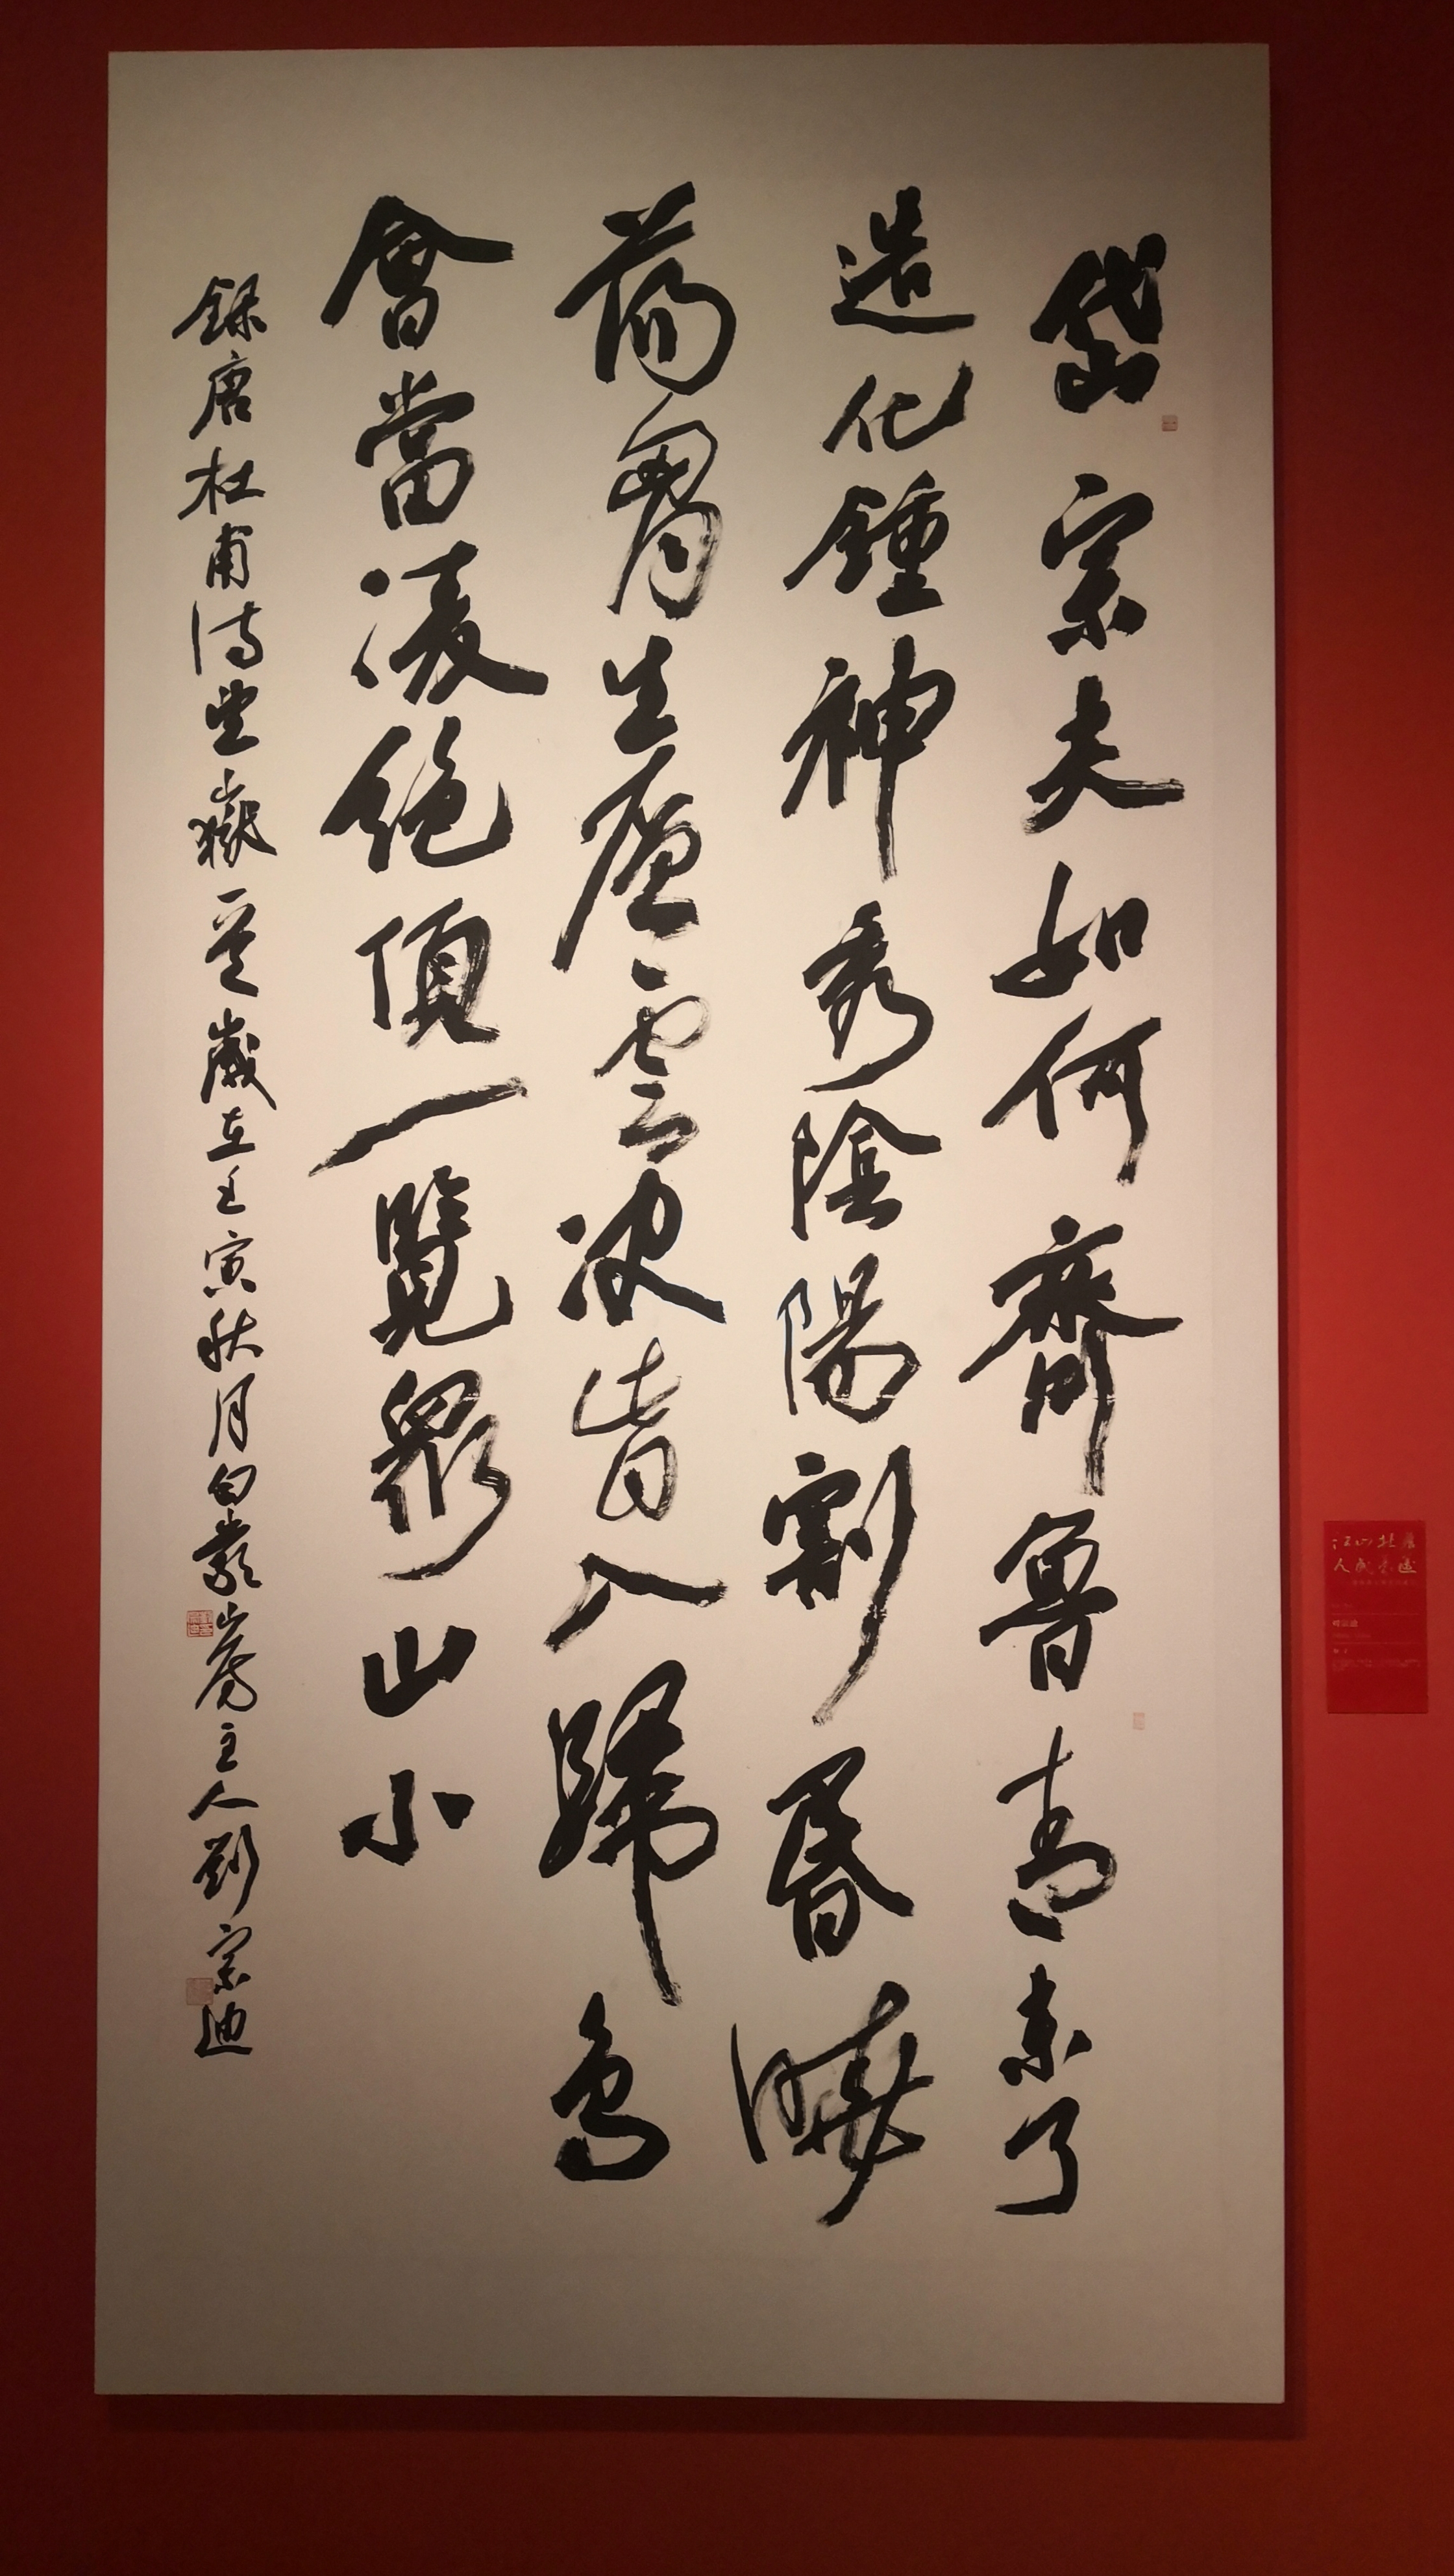 岱宗夫如何齊魯青未了
造化鍾神秀陰陽割昏曉
蕩胷生層雲决眥入歸鳥
會當凌絕頂一覽眾山小
錄唐杜甫詩望嶽一首歲在壬寅秋月白巖山房主人劉宗迪
江山壯麗
人民豪邁